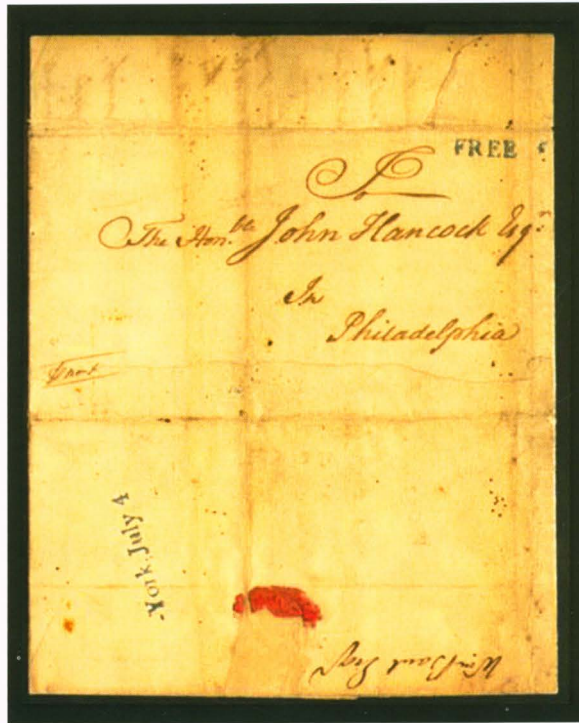 FREE
To
The Hon.ble John Hancock Esqr.
In
Philadelphia
York July 4
Esqr